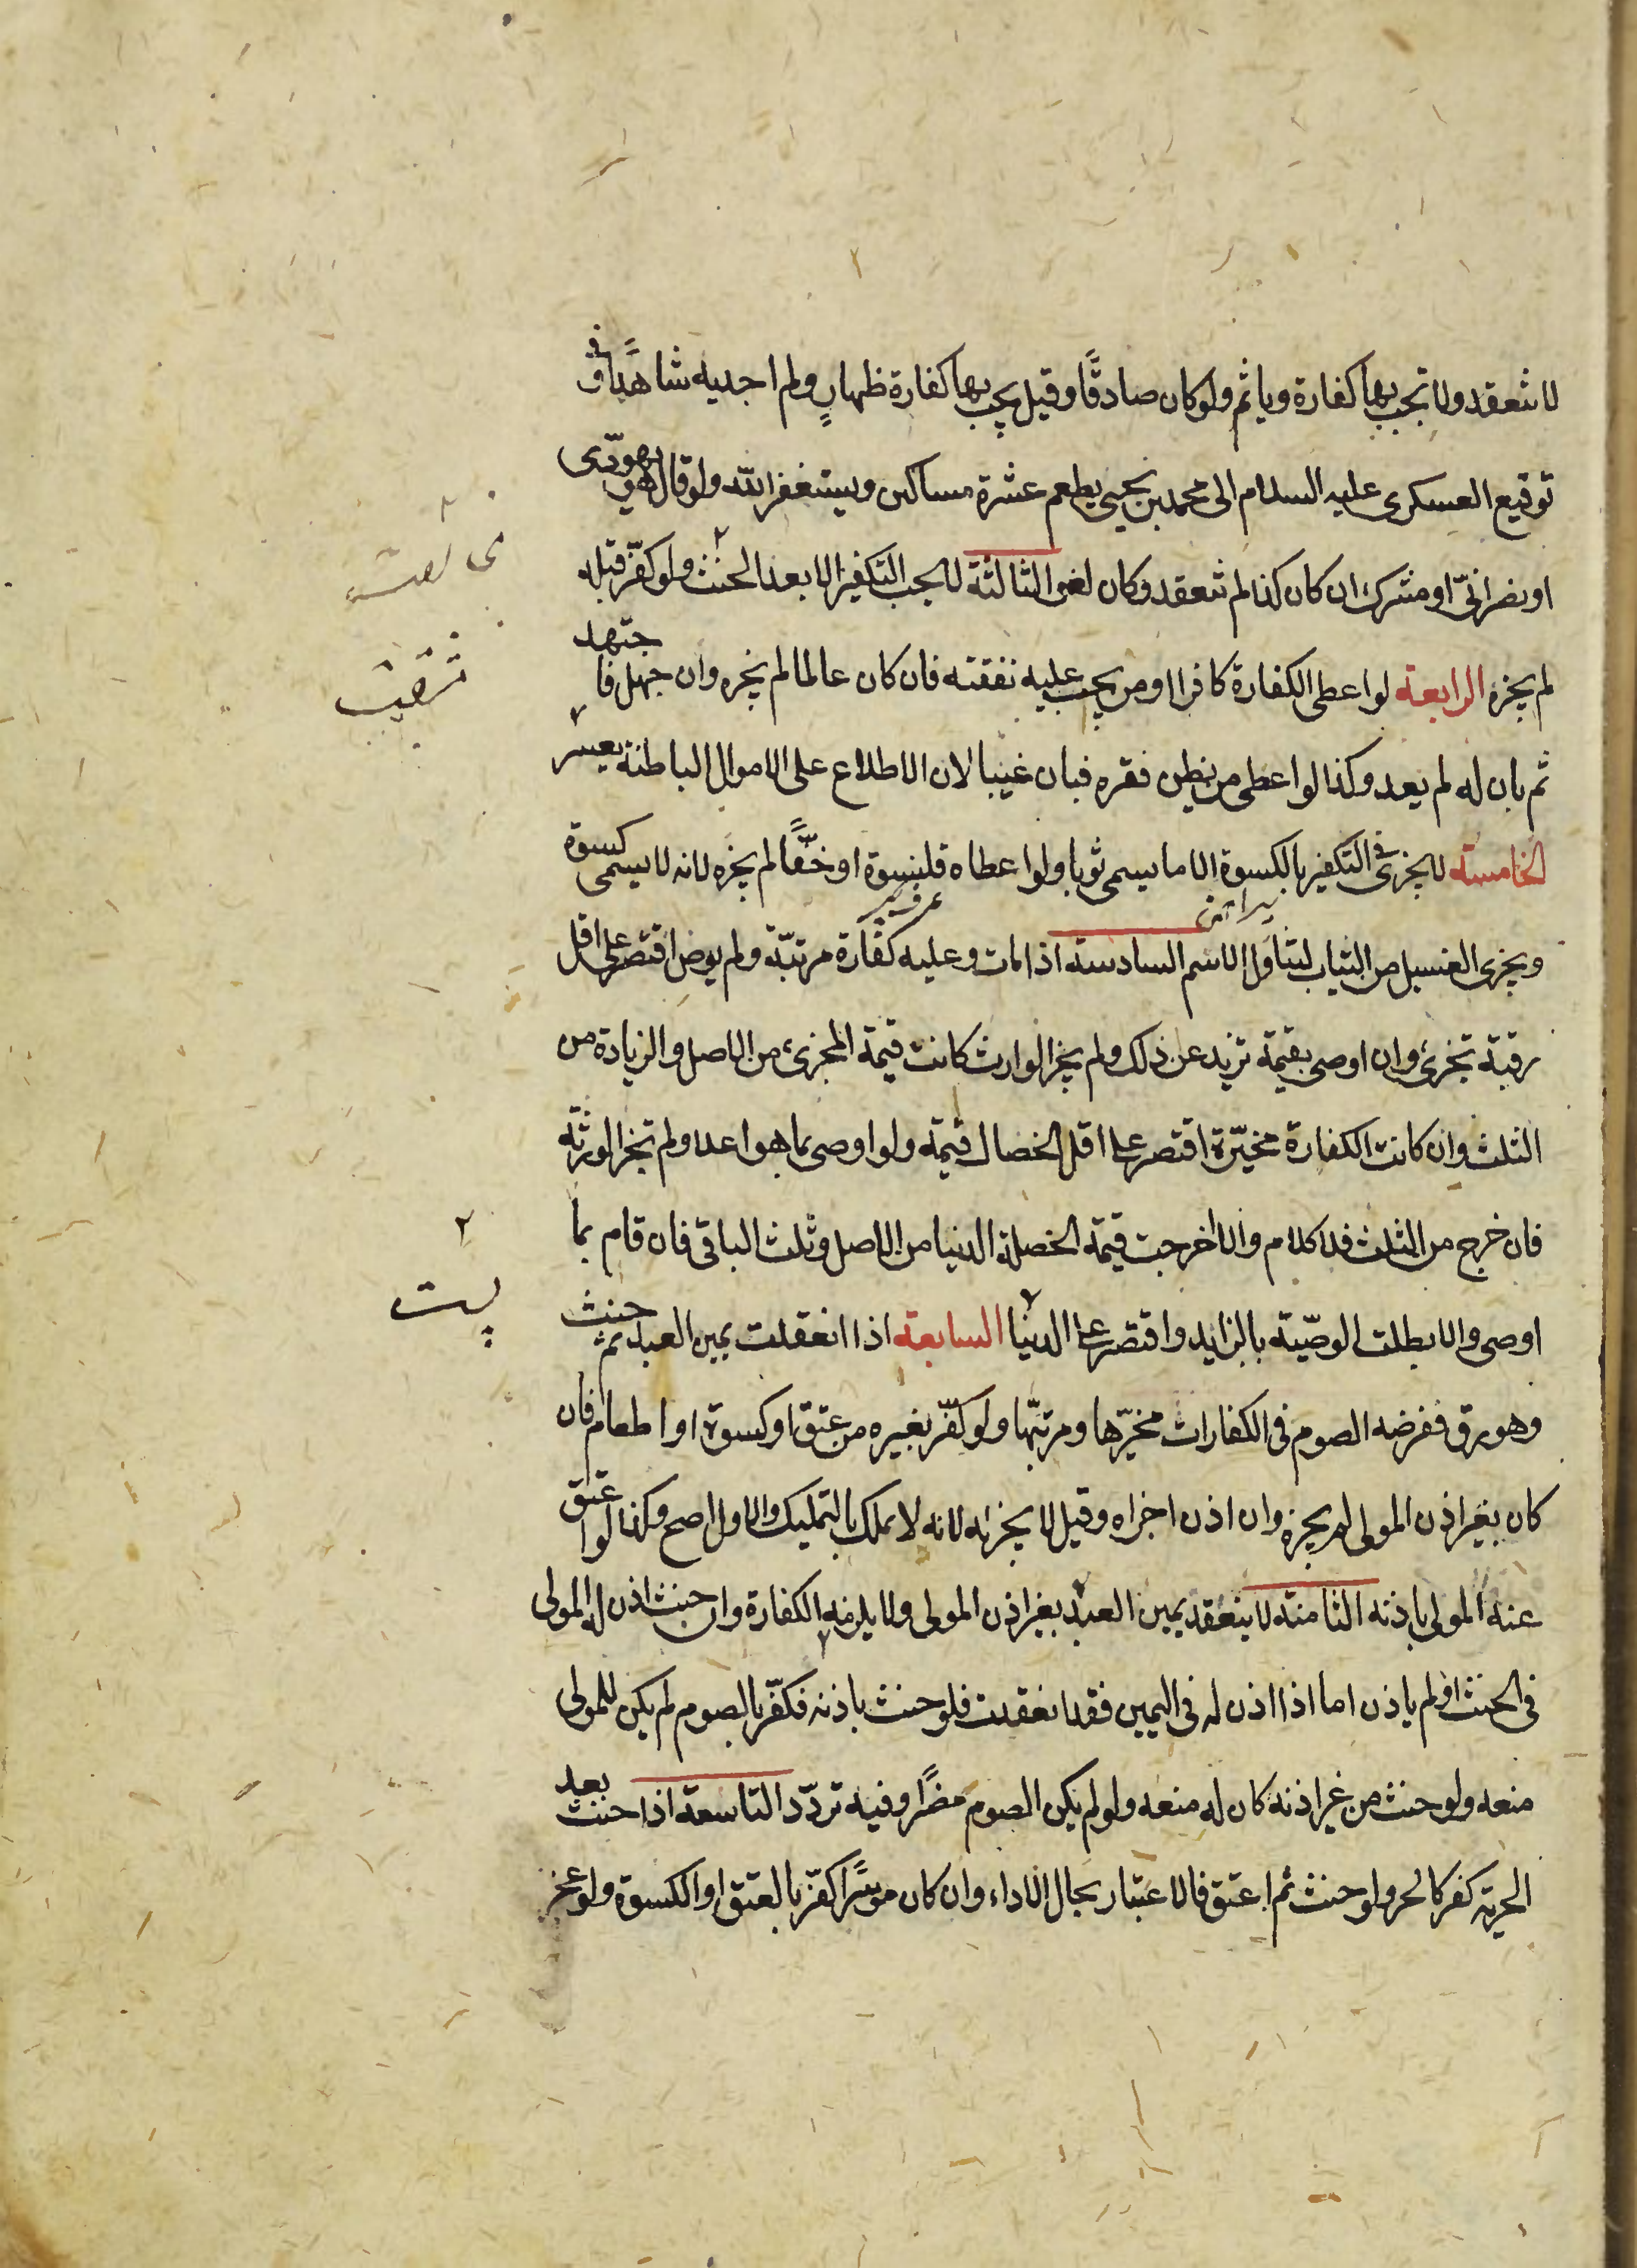 لا تنعقد ولا تجب بها كفارة وياثم ولو كان صادقًا وقيل يجب بها كفارة ظهارٍ ولم اجد به شاهدًا وفى
توقيع العسكرى عليه السلام الى محمد بن يحيى يطعم عشرة مساكين ويستغفر الله ولو قال هو يهودّى
او نصرانىّ او مشرك ان كان كذا لم تنعقد وكان لغى الثالثة لا يجب التكفير الا بعد الحنث ولو كفّر قبله
لم يجزه الرابعة لو اعطى الكفارة كافرا او من يجب عليه نفقته فان كان عالما لم يجزه وان جهل فاجتهد
ثم بان له لم يعد وكذا لو اعطى من يظن فقره فبان غنيا لان الاطلاع على الاموال الباطنة يعسر
الخامسة لا يجزى فى التكفير بالكسوة الا ما يسمى ثوبا ولو اعطاه قلنسوة او خفًّا لم يجزه لانه لا يسمى كسوة
ويجزى الغسيل من الثياب لتناول الاسم السادسة اذا مات وعليه كفّارة مرتبّة ولم يوص اقتصر على اقل
رقبة تجزئ وان اوصى بقيمة تزيد عن ذلك ولم يجز الوارث كانت قيمة المجزئ من الاصل والزيادة من
الثلث وان كانت الكفارة مخيّرة اقتصر على اقل الخصال قيمة ولو اوصى بما هو اعلا ولم تجز الورثة
فان خرج من الثلث فلا كلام والا اخرجت قيمة الخصلة الدنيا من الاصل وثلث الباقى فان قام بما
اوصى والا بطلت الوصّية بالزايد واقتصر على الدنيا السابعة اذا انعقدت يمين العبد ثم حنث
وهو رق ففرضه الصوم فى الكفارات مخيّرها ومرتبّها ولو كفّر بغيره من عتق او كسوة او اطعام فان
كان بغير اذن المولى لم يجزه وان اذن اجزاه وقيل لا يجزيه لانه لا يملك بالتمليك والاول اصح وكذا لو اعتق
عنه المولى باذنه الثامنة لا ينعقد يمين العبد بغير اذن المولى ولا يلزمه الكفارة وان حنث اذن له المولى
فى الحنث او لم ياذن اما اذا اذن له فى اليمين فقد انعقدت فلو حنث باذنه فكفّر بالصوم لم يكن للمولى
منعه ولو حنث من غير اذنه كان له منعه ولو لم يكن الصوم مضرًا وفيه تردّد التاسعة اذا حنث بعد
الحرية كفر كالحر ولو حنث ثم اعتق فالاعتبار بحال الاداء وان كان موسرًا كفّر بالعتق او الكسوة ولو عجز